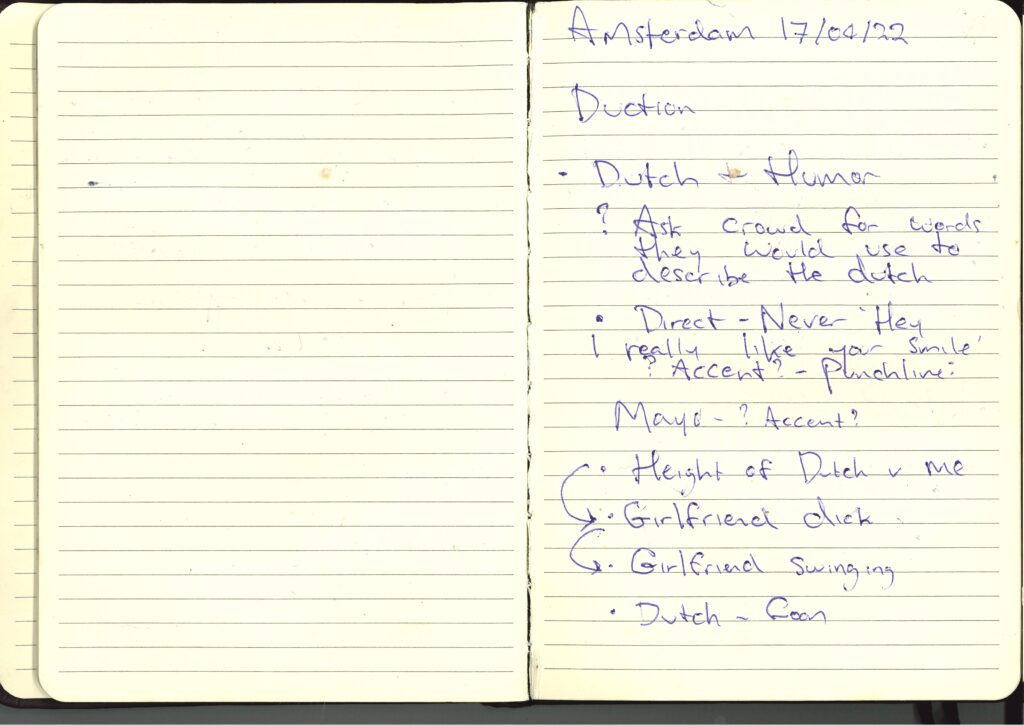 Amsterdam 17/04/22
Duction
• Dutch + Humor
? Ask crowd for words
they would use to
describe the dutch
• Direct - Never 'Hey
I really like your smile'
? Accent? - Punchline:
Mayo - ? Accent?
• Height of Dutch v me
• Girlfriend dick
• Girlfriend swinging
• Dutch -